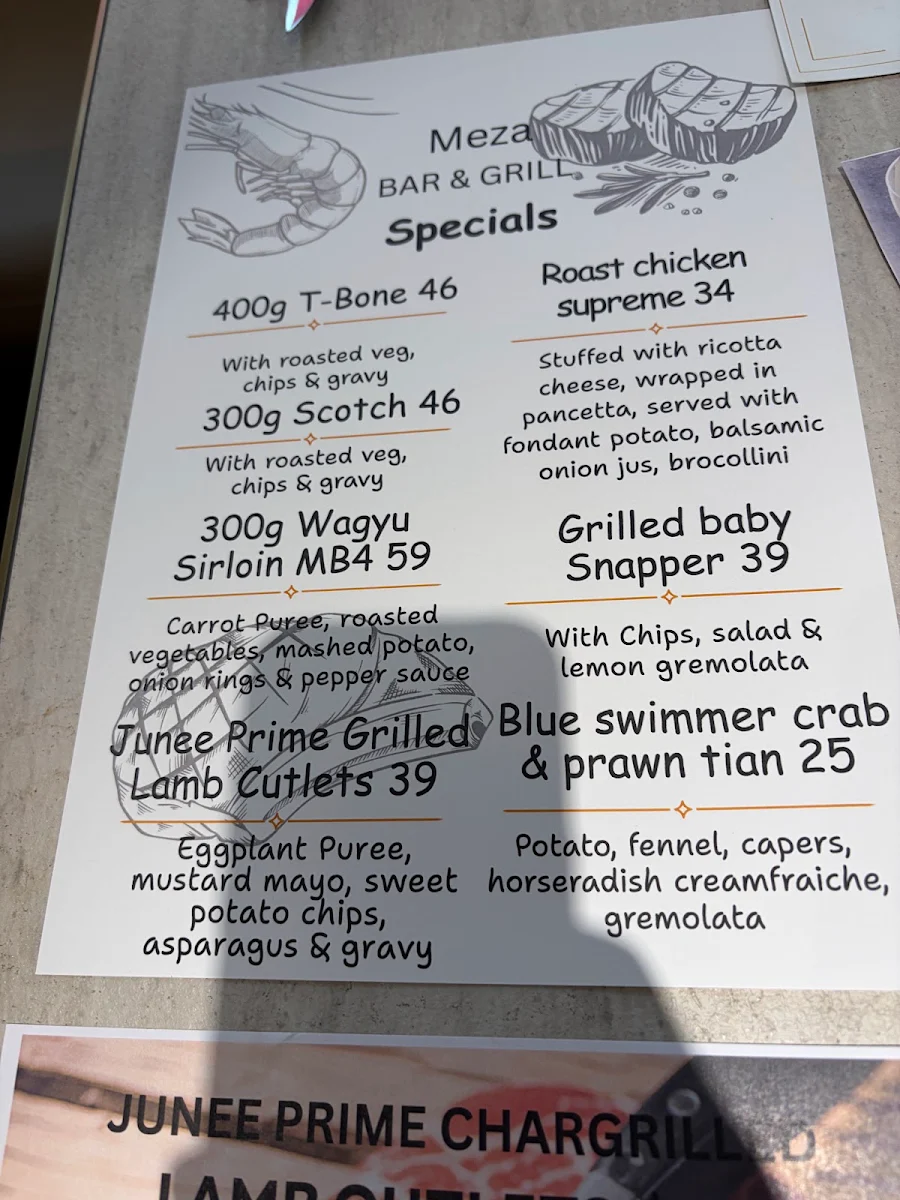 Meza
BAR & GRILL
Specials
400g T-Bone 46
With roasted veg,
chips & gravy
300g Scotch 46
With roasted veg,
chips & gravy
300g Wagyu
Sirloin MB4 59
Carrot Puree, roasted
vegetables, mashed potato,
onion rings & pepper sauce
Junee Prime Grilled
Lamb Cutlets 39
Eggplant Puree,
mustard mayo, sweet
potato chips,
asparagus & gravy
Roast chicken
supreme 34
Stuffed with ricotta
cheese, wrapped in
pancetta, served with
fondant potato, balsamic
onion jus, brocollini
Grilled baby
Snapper 39
With Chips, salad &
lemon gremolata
Blue swimmer crab
& prawn tian 25
Potato, fennel, capers,
horseradish creamfraiche,
gremolata
JUNEE PRIME CHARGRILLED
LAMB CUTLETS